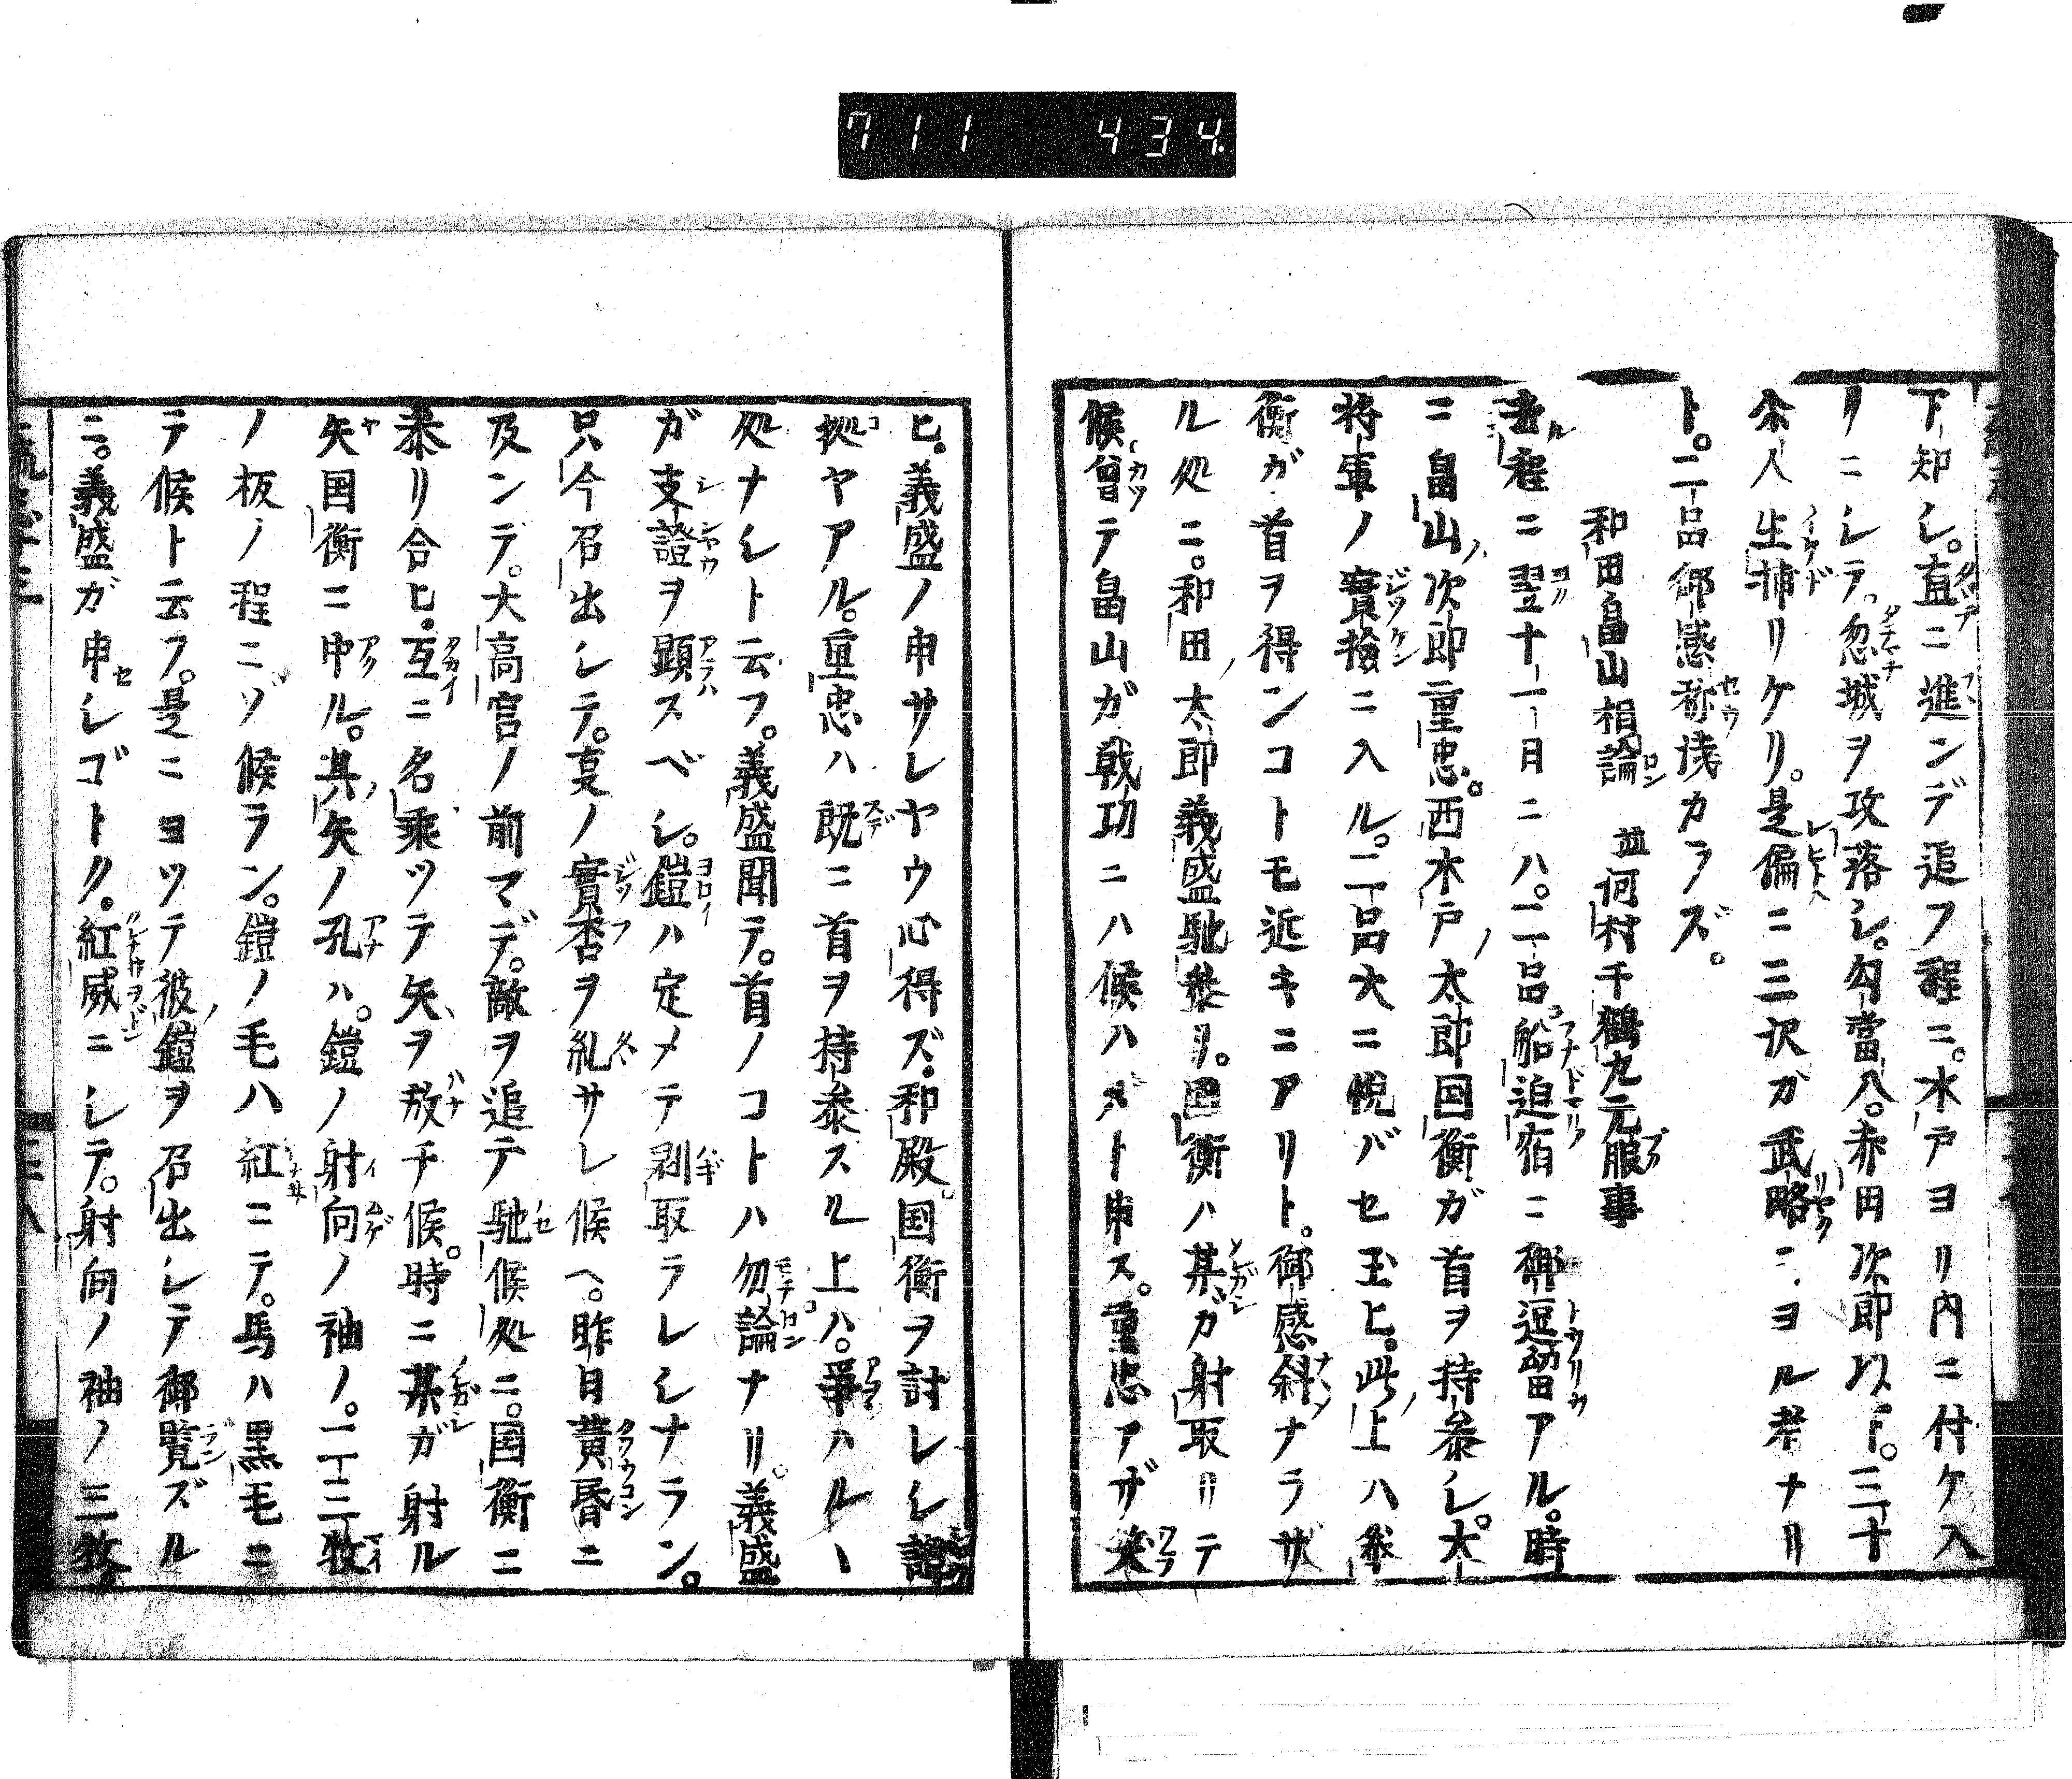 711 434
下知シ。直ニ進ンデ追フ程ニ。木戸ヨリ内ニ付ケ入
リニシテ。忽城ヲ攻落シ。勾當八。赤田次郎以下。三十
余人生捕リケリ。是偏ニ三沢ガ武略ニヨル者ナリ
ト。二品御感称浅カラズ。
和田畠山相論 並河村千鶴丸元服事
去程ニ翌十一日ニハ。二品船迫宿ニ御逗留アル。時
ニ畠山次郎重忠。西木戸太郎国衡ガ首ヲ持参シ。大
将軍ノ實撿ニ入ル。二品大ニ悦バセ玉ヒ。此上ハ泰
衡ガ首ヲ得ンコトモ近キニアリト。御感斜ナラザ
ル処ニ。和田太郎義盛馳参リ。国衡ハ某ガ射取リテ
候曽テ畠山ガ戦功ニハ候ハズト申ス。重忠アザ笑
ヒ。義盛ノ申サレヤウ心得ズ。和殿。国衡ヲ討レシ證
拠ヤアル。重忠ハ既ニ首ヲ持参スル上ハ。爭ハルヽ
処ナシト云フ。義盛聞テ。首ノコトハ勿論ナリ。義盛
ガ支證ヲ顕スベシ。鎧ハ定メテ剥取ラレシナラン。
只今召出シテ。㕝ノ實否ヲ糺サレ候ヘ。昨日黄昏ニ
及ンデ。大高宮ノ前マデ。敵ヲ追テ馳候処ニ。国衡ニ
参リ合ヒ。互ニ名乗ツテ矢ヲ放チ候。時ニ某ガ射ル
矢国衡ニ中ル。其矢ノ孔ハ。鎧ノ射向ノ袖ノ。二三枚
ノ板ノ程ニゾ候ラン。鎧ノ毛ハ紅ニテ。馬ハ黒毛ニ
テ候ト云フ。是ニヨツテ彼鎧ヲ召出シテ御覧ズル
ニ。義盛ガ申シゴトク。紅威ニシテ。射向ノ袖ノ三枚